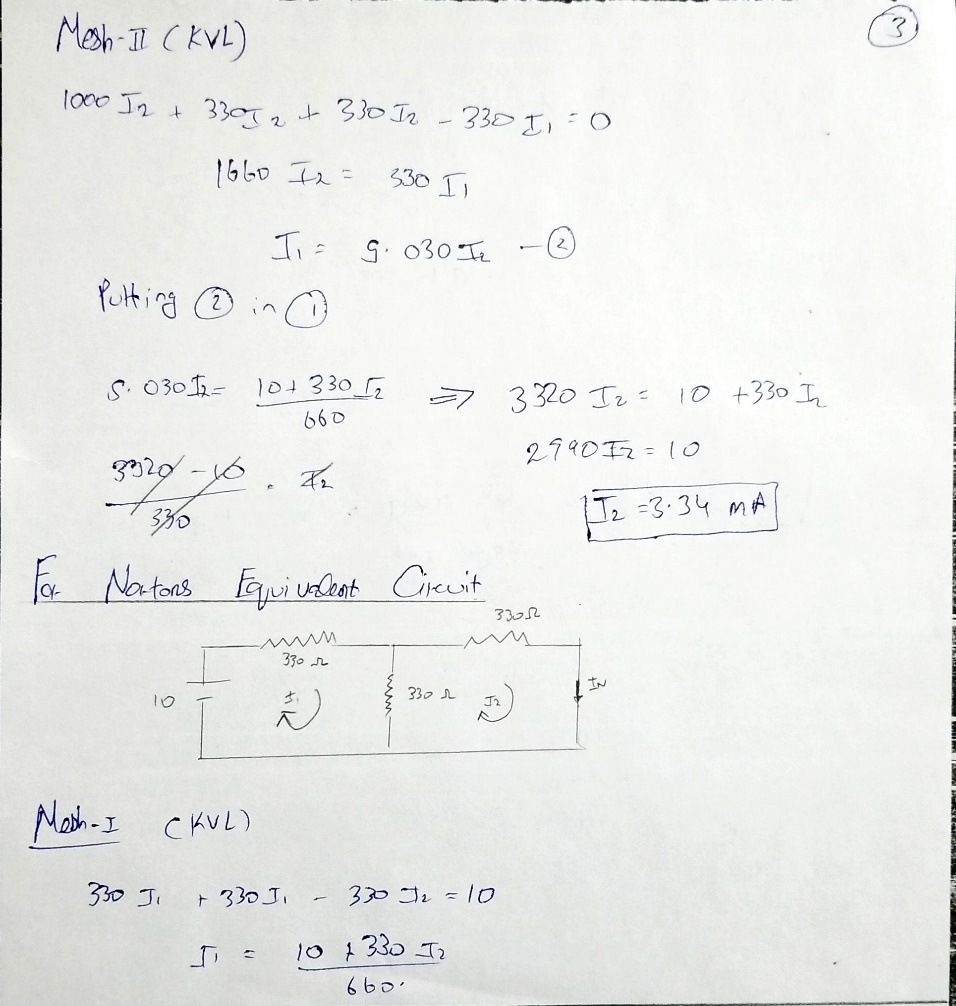 Mesh-II (KVL)
3
1000 I2 + 330I2 + 330 I2 - 330 I1 = 0
1660 I2 = 330 I1
I1 = 5.030 I2 - 2
Putting 2 in 1
5.030 I2 = 10 + 330 I2 / 660 => 3320 I2 = 10 + 330 I2
2990 I2 = 10
3320 - 10 / 330 . I2
I2 = 3.34 mA
For Nortons Equivalent Circuit
330Ω
330 Ω
10 I1 330 Ω I2 IN
Mesh-I (KVL)
330 I1 + 330 I1 - 330 I2 = 10
I1 = 10 + 330 I2 / 660.